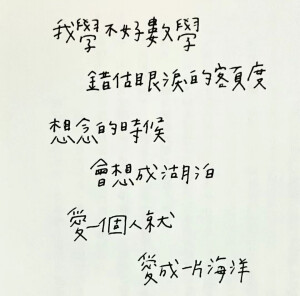 我學不好數學
錯估眼淚的額度
想念的時候
會想成湖泊
愛一個人就
愛成一片海洋